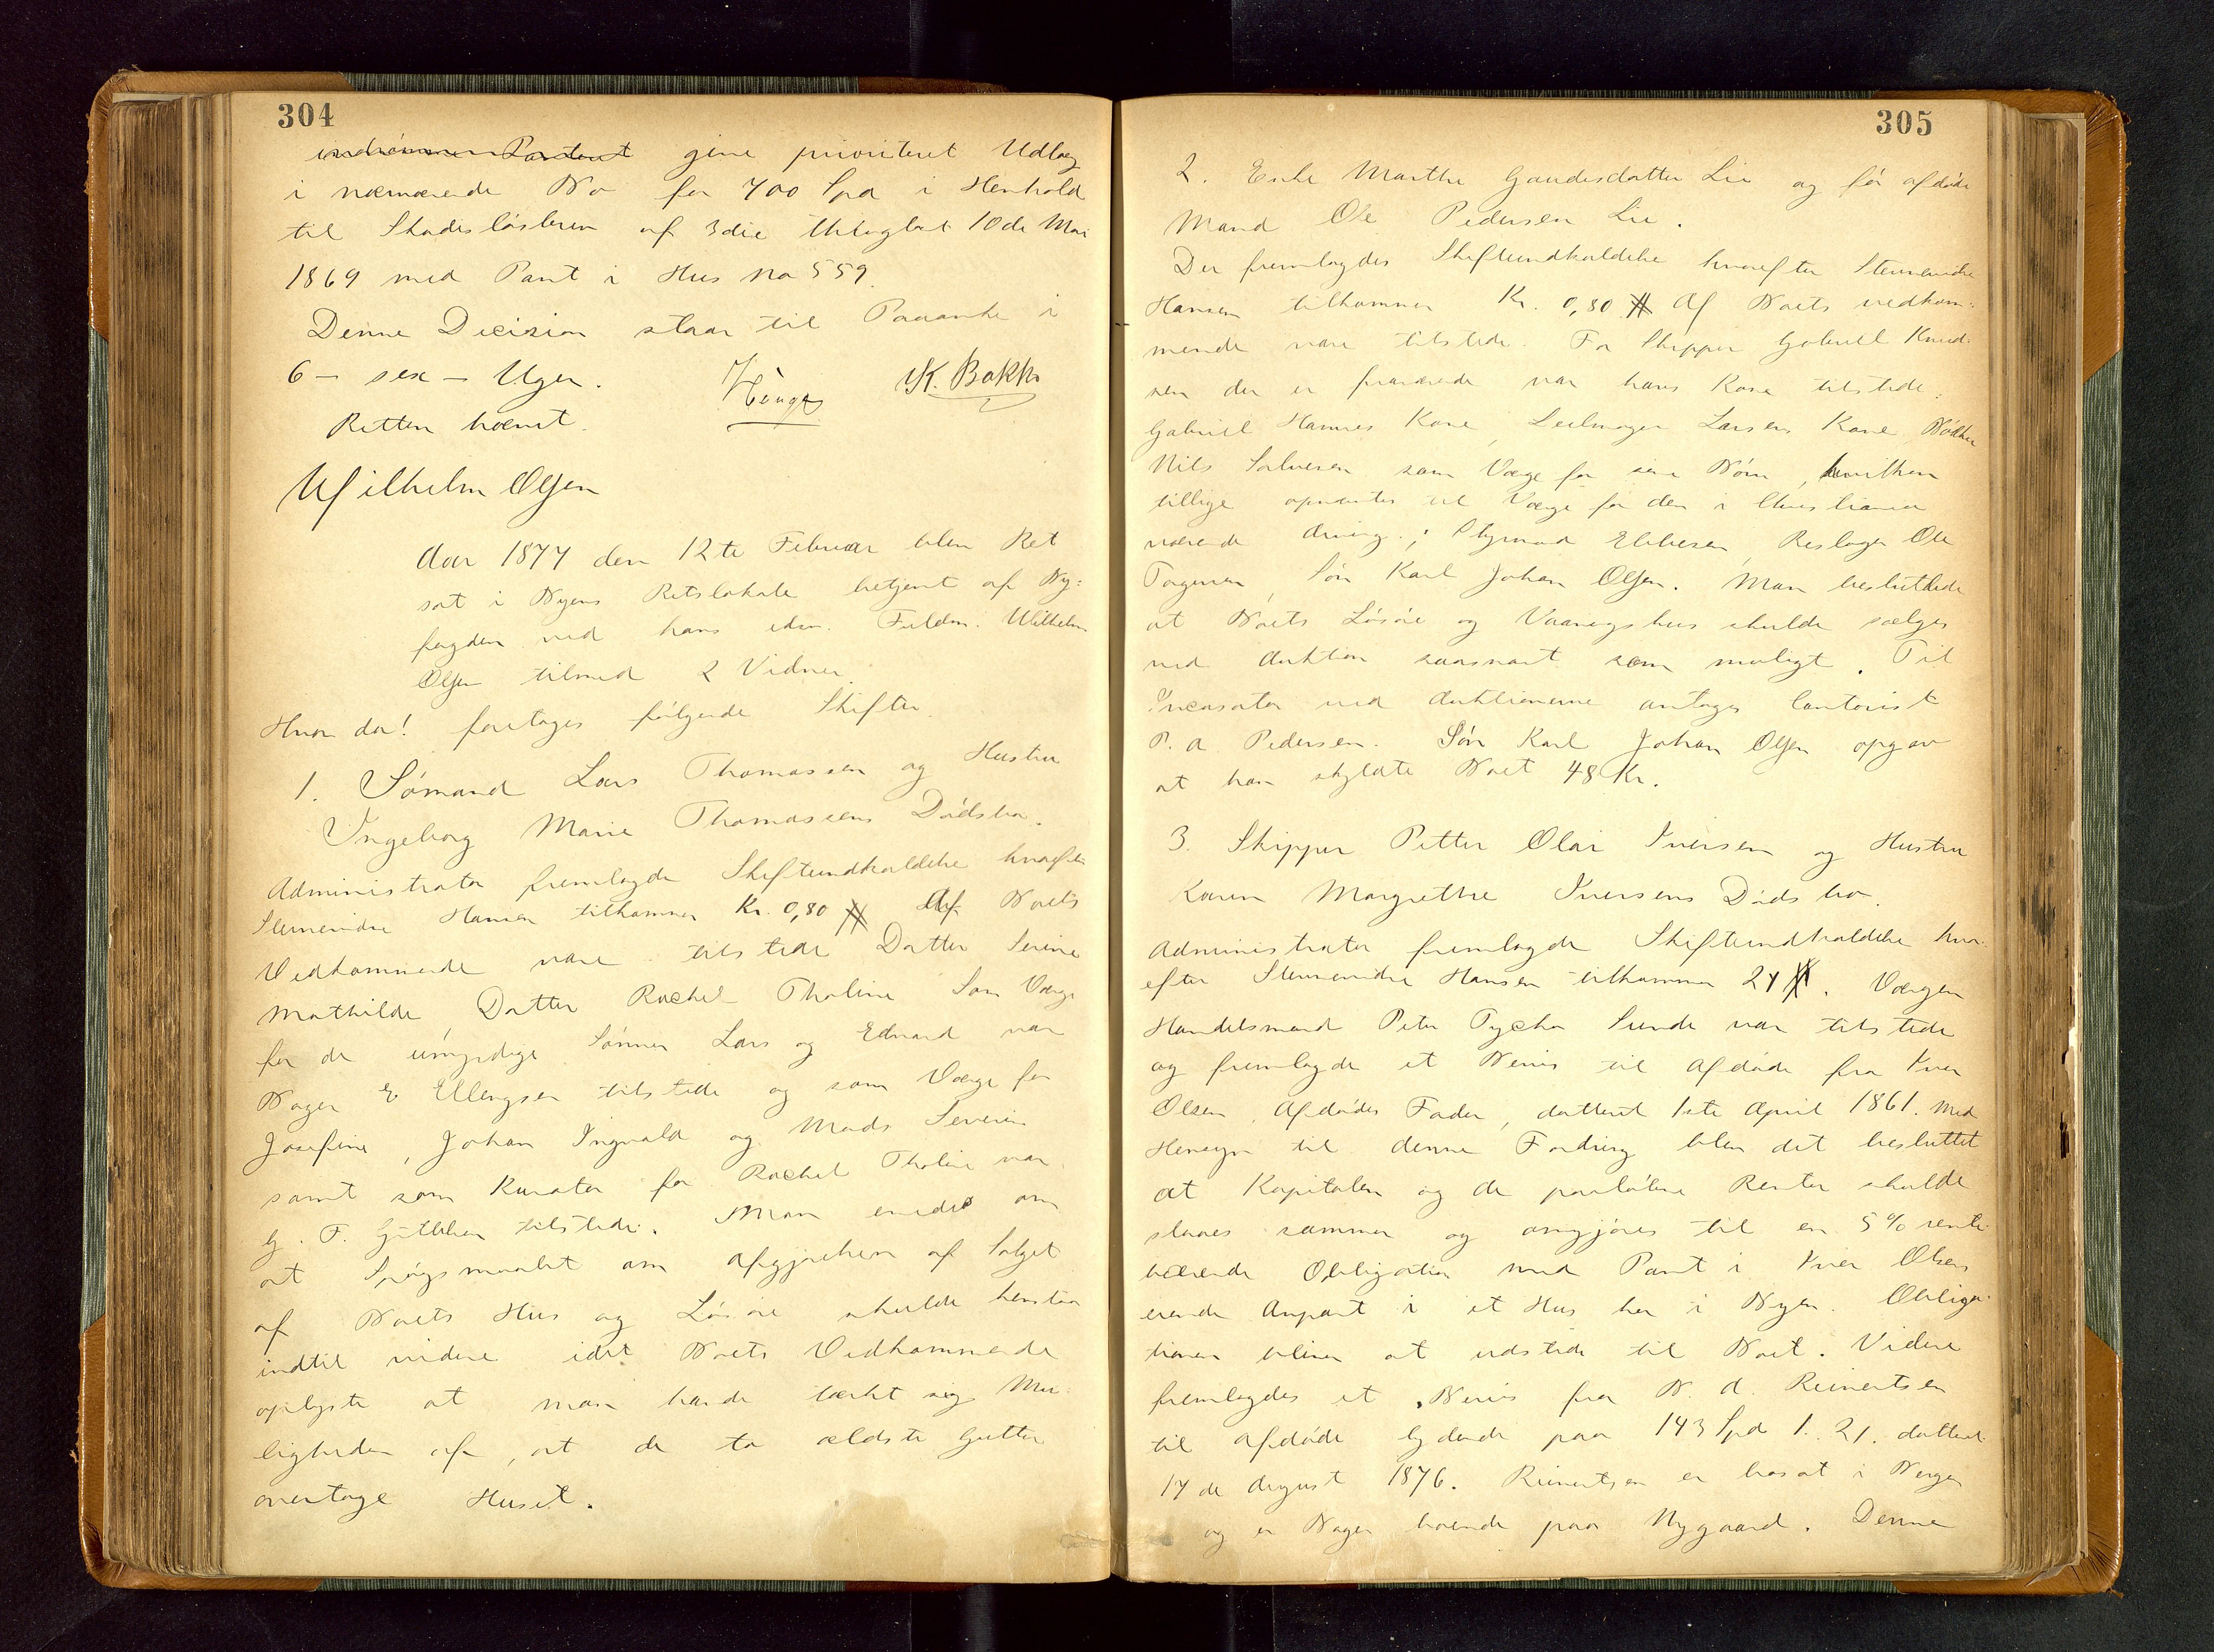 304
indrømmer Pantent give prioriteret Udlæg
i nærværende Bo for 700 Spd i Henhold
til Skadesløsbrev af 3die thlagbet 10de Mai
1869 med Pant i Hus No 559.
Denne Decision staar til Paaanke i
6 – sex – Uger.
Retten hævet.
K. Bakke
Wilhelm Olsen
Aar 1877 den 12te Februar blev Ret
sat i Byens Retslokale betjent af By=
fogden ved hans edsv. Fuldm. Wilhelm
Olsen tilmed 2 Vidner.
Hvor da! foretoges følgende Skifter.
1. Sømand Lars Thomassen og Hustru
Ingeborg Marie Thomassens Dødsbo.
Administrator fremlagde Skifteindkaldelse hvorefter
Stevnevidne Hansen tilkommer Kr. 0,80 Af Boets
Vedkommende vare tilstede Datter Serine
Mathilde, Datter Rachel Tholine Som Værge
for de umyndige Sønner Lars og Edvard var
Bager E Ellengsen tilstede og som Værge for
Josefine, Johan Ingvald og Mads Severin
samt som Kurator for Rachel Tholine var
G. F. tilstede. Man enedes om
at Spørgsmaalet om Afgjørelsen af Salget
af Boets Hus og Løsøre skulde henstaa
indtil videre idet Boets Vedkommende
oplyste at man havde tænkt sig Mu-
ligheden af, at de to ældste Gutter
overtage Huset.
305
2. Enke Marthe Gaudesdatter Lie og før afdøde
Mand Ole Pedersen Lie.
Der fremlagdes Skifteindkaldelse hvorefter Stevnevidne
Hansen tilkommer Kr. 0,80 Af Boets vedkom=
mende vare tilstede. For Skipper Gabriel Knud-
sen der er fraværende var hans Kone tilstede,
Gabriel Hannes Kone, Seilmager Larsens Kone, Bødker
Nils Salvesen som Værge for sine Børn, hvilken
tillige opnævntes til Værge for den i Christiania
værende Arving.; Styrmand Ellefsen, Repslager Ole
Torgersen, Søn Karl Johan Olsen. Man besluttede
at Boets Løsøre og Vaaningshus skulde sælges
ved Auktion saasnart som muligt. Til
Incasator ved Auktionerne antoges Contorist
P. A. Pedersen. Søn Karl Johan Olsen opgav
at han skyldte Boet 48 Kr.
3. Skipper Petter Olai Iversen og Hustru
Karen Margrethe Iversens Dødsbo.
Administrator fremlagde Skifteindkaldelse hvor-
efter Stevnevidne Hansen tilkommer 24. Værgen
Handelsmand Peter Tycho Sunde var tilstede
og fremlagde et Bevis til Afdøde fra Iver
Olsen, Afdødes Fader, datteret 1ste April 1861. Med
Hensyn til denne Fordring blev det besluttet
at Kapitalen og de paaløbne Renter skulde
slaaes sammen og omgjøres til en 5% rente-
bærende Obligation med Pant i Iver Olsens
eiende Anpart i et Hus her i Byen. Obliga-
tionen bliver at udstede til Boet. Videre
fremlagdes et Bevis fra B. A. Reinertsen
til Afdøde lydende paa 143 Spd 1. 21. datteret
17de August 1876. Reinertsen er bosat i Bergen
og er Bager boende paa Nygaard. Denne